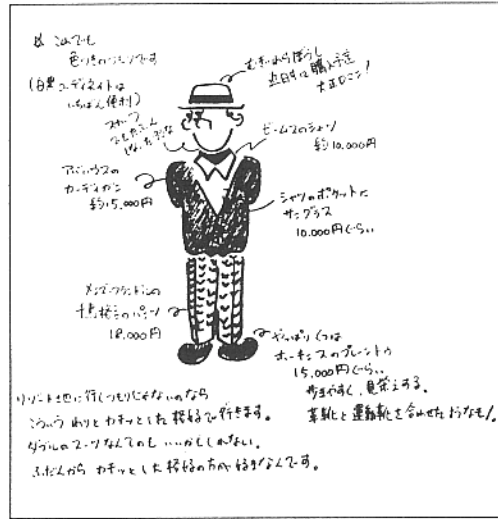 これでも
色つきのつもりです
(白黒コーディネイトは
いちばん便利)
むぎわらぼうし
近日中に購入予定
大正ロマン!
スカーフ
ビームスのシャツ
約10,000円
アバハウスの
カーディガン
約15,000円
シャツのポケットに
サングラス
10,000円ぐらい
メンズ
千鳥格子のパンツ
18,000円
やっぱりくつは
ホーキンスのプレーントゥ
15,000円ぐらい
歩きやすく、見栄えする。
革靴と運動靴を合わせたようなモノ。
リゾート地に行くつもりじゃないのなら
こういうわりとカチッとした格好で行きます。
ダブルのスーツなんてのもいいかもしれない。
ふだんからカチッとした格好の方が好きなんです。